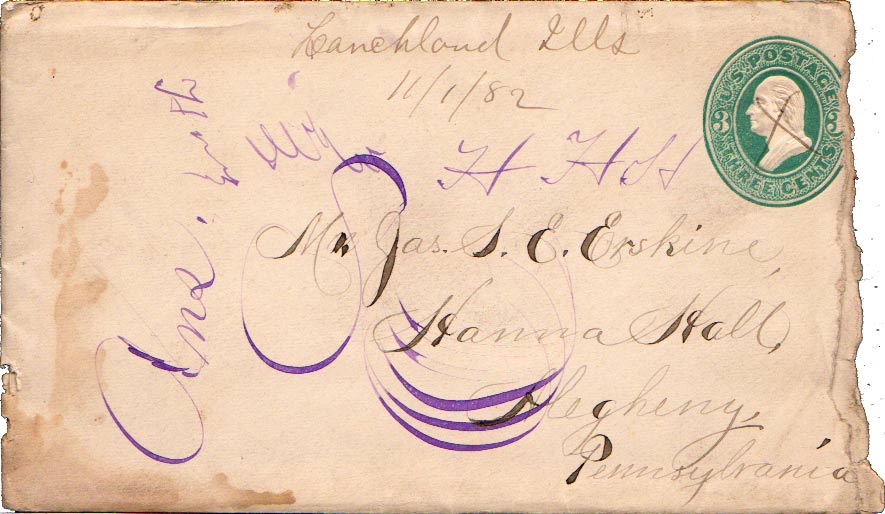 Blanchloud Ills
11/1/82
U.S. POSTAGE
3 3
THREE CENTS
H H H
Mr. Jas. S. E. Erskine,
Hanna Hall,
Alegheny,
Pennsylvania
Ans.